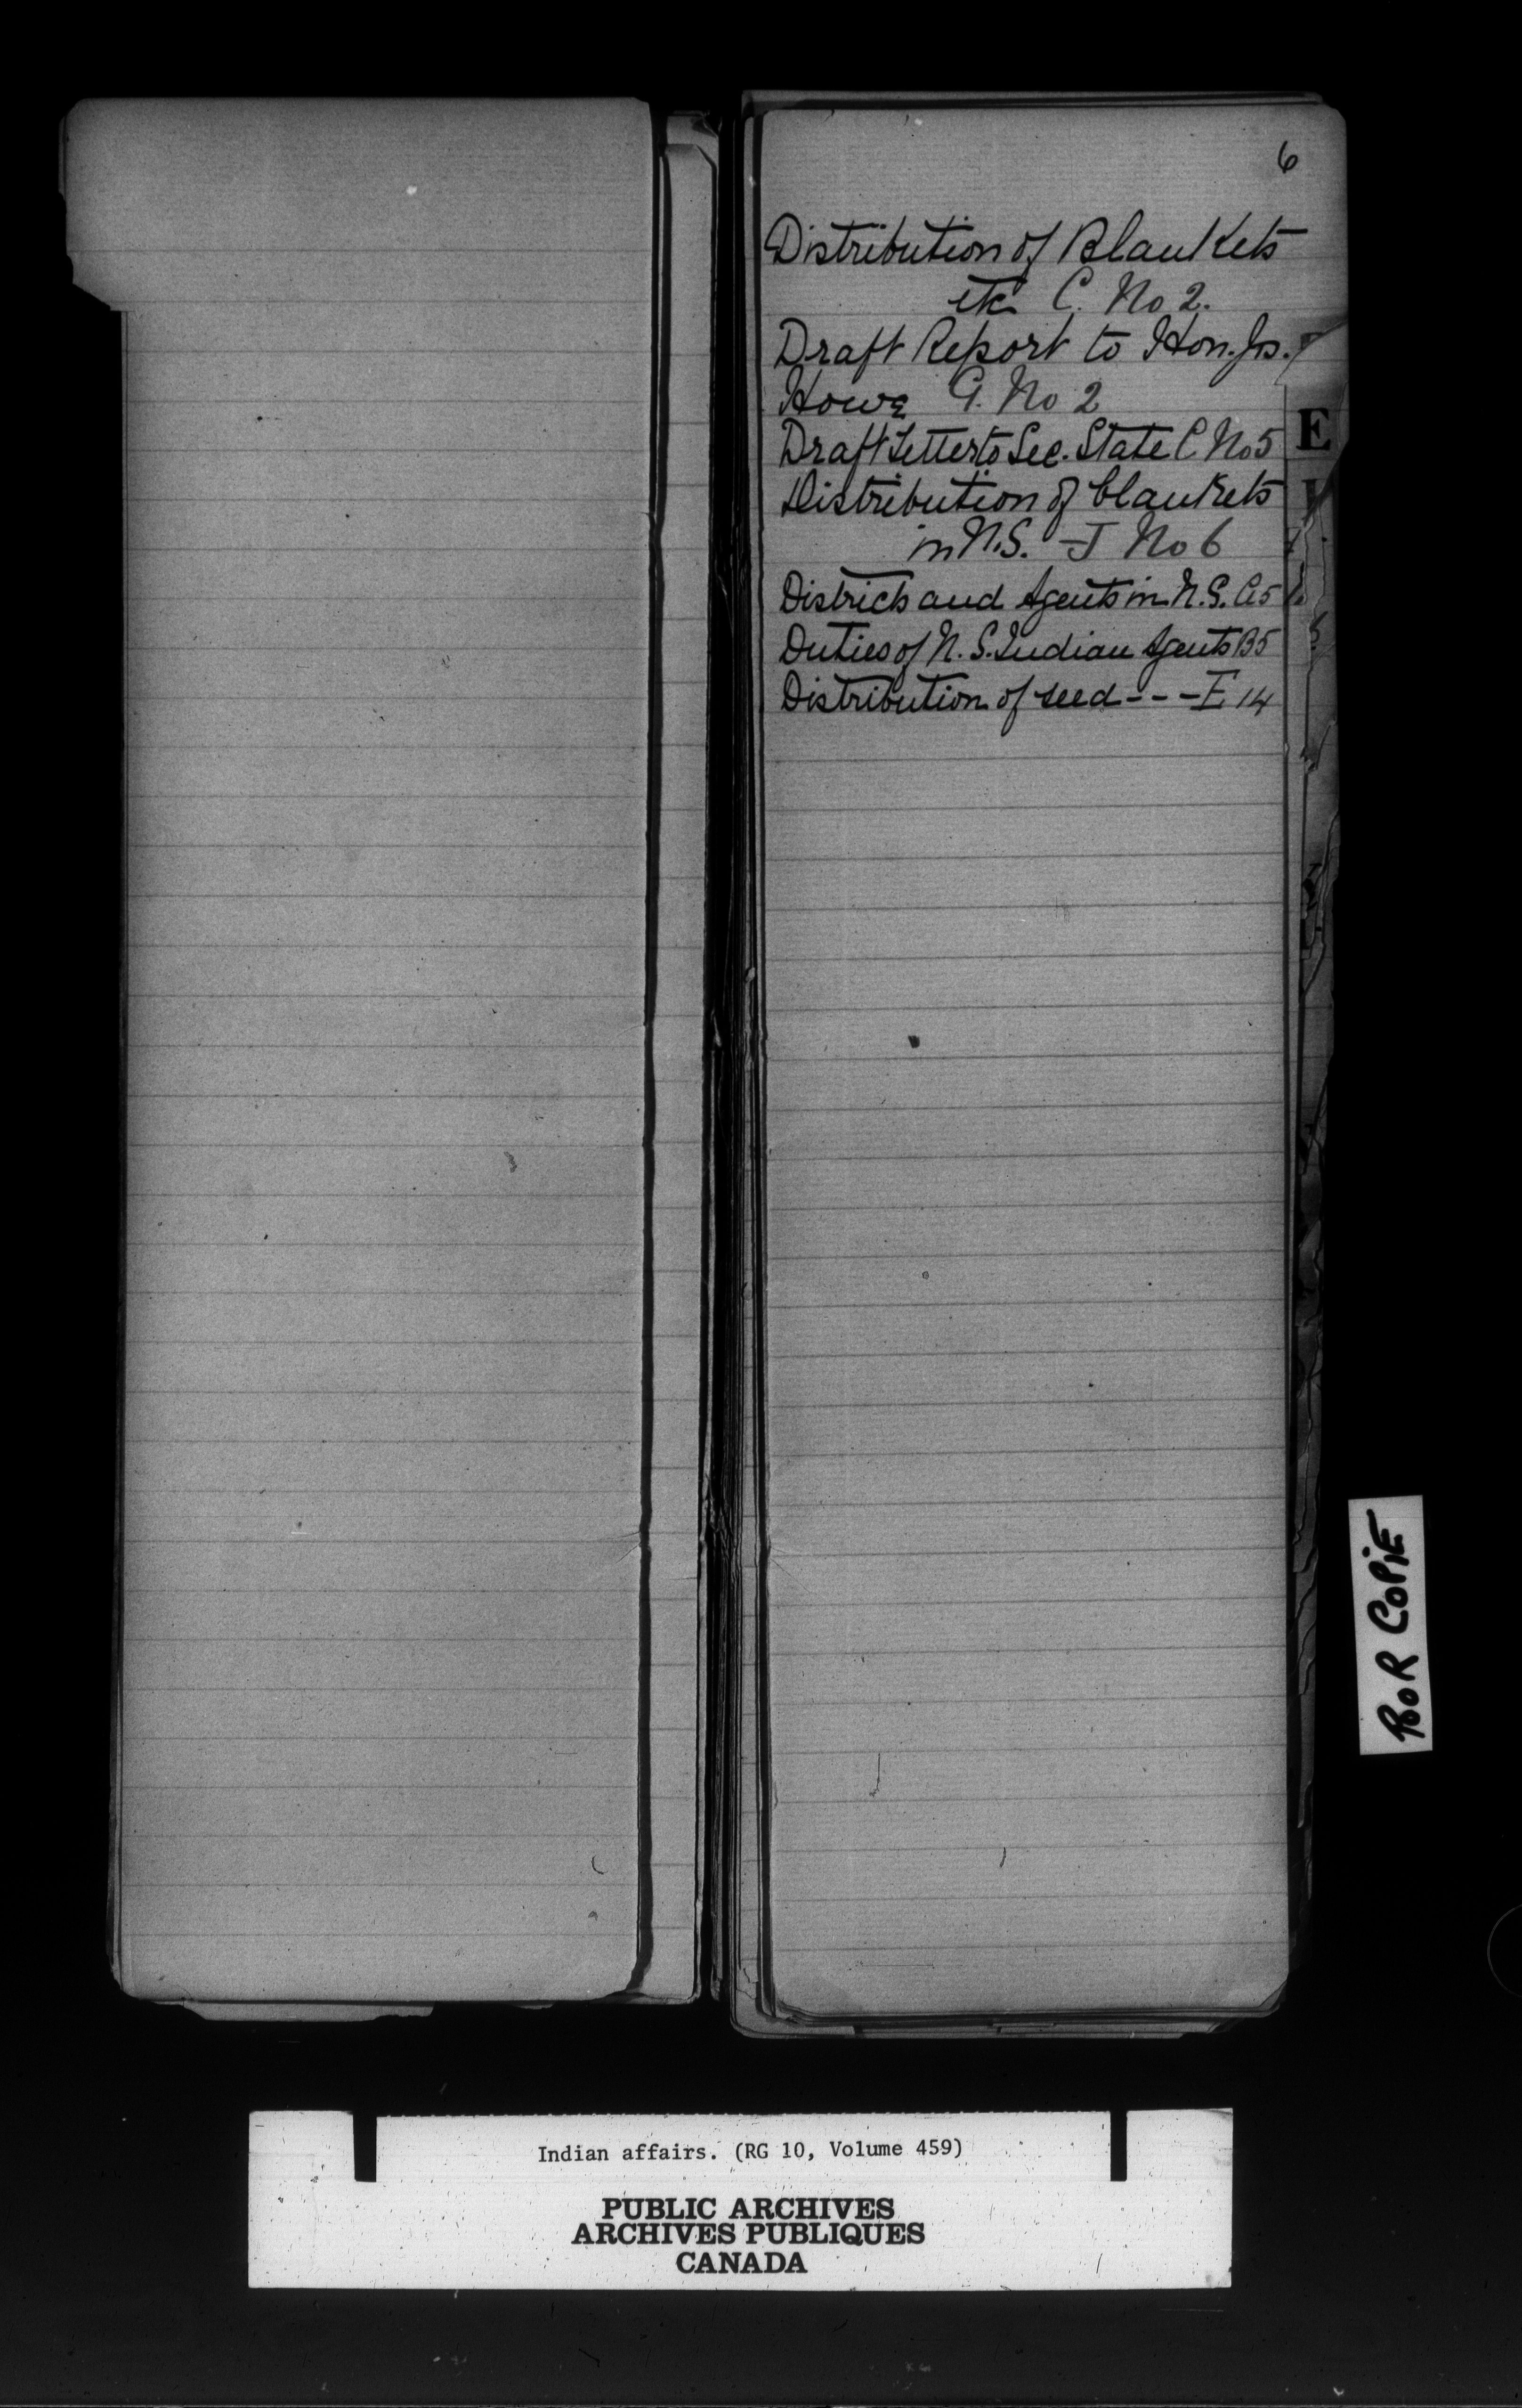 6
Distribution of Blankets
etc C. No 2.
Draft Report to Hon. Jos.
Howe G. No 2
Draft Letter to Sec. State C No 5
Distribution of blankets
in N.S. - J No 6
Districts and Agents in N.S. A5
Duties of N.S. Indian Agents B5
Distribution of seed - - - E 14
E
POOR COPIE
Indian affairs. (RG 10, Volume 459)
PUBLIC ARCHIVES
ARCHIVES PUBLIQUES
CANADA